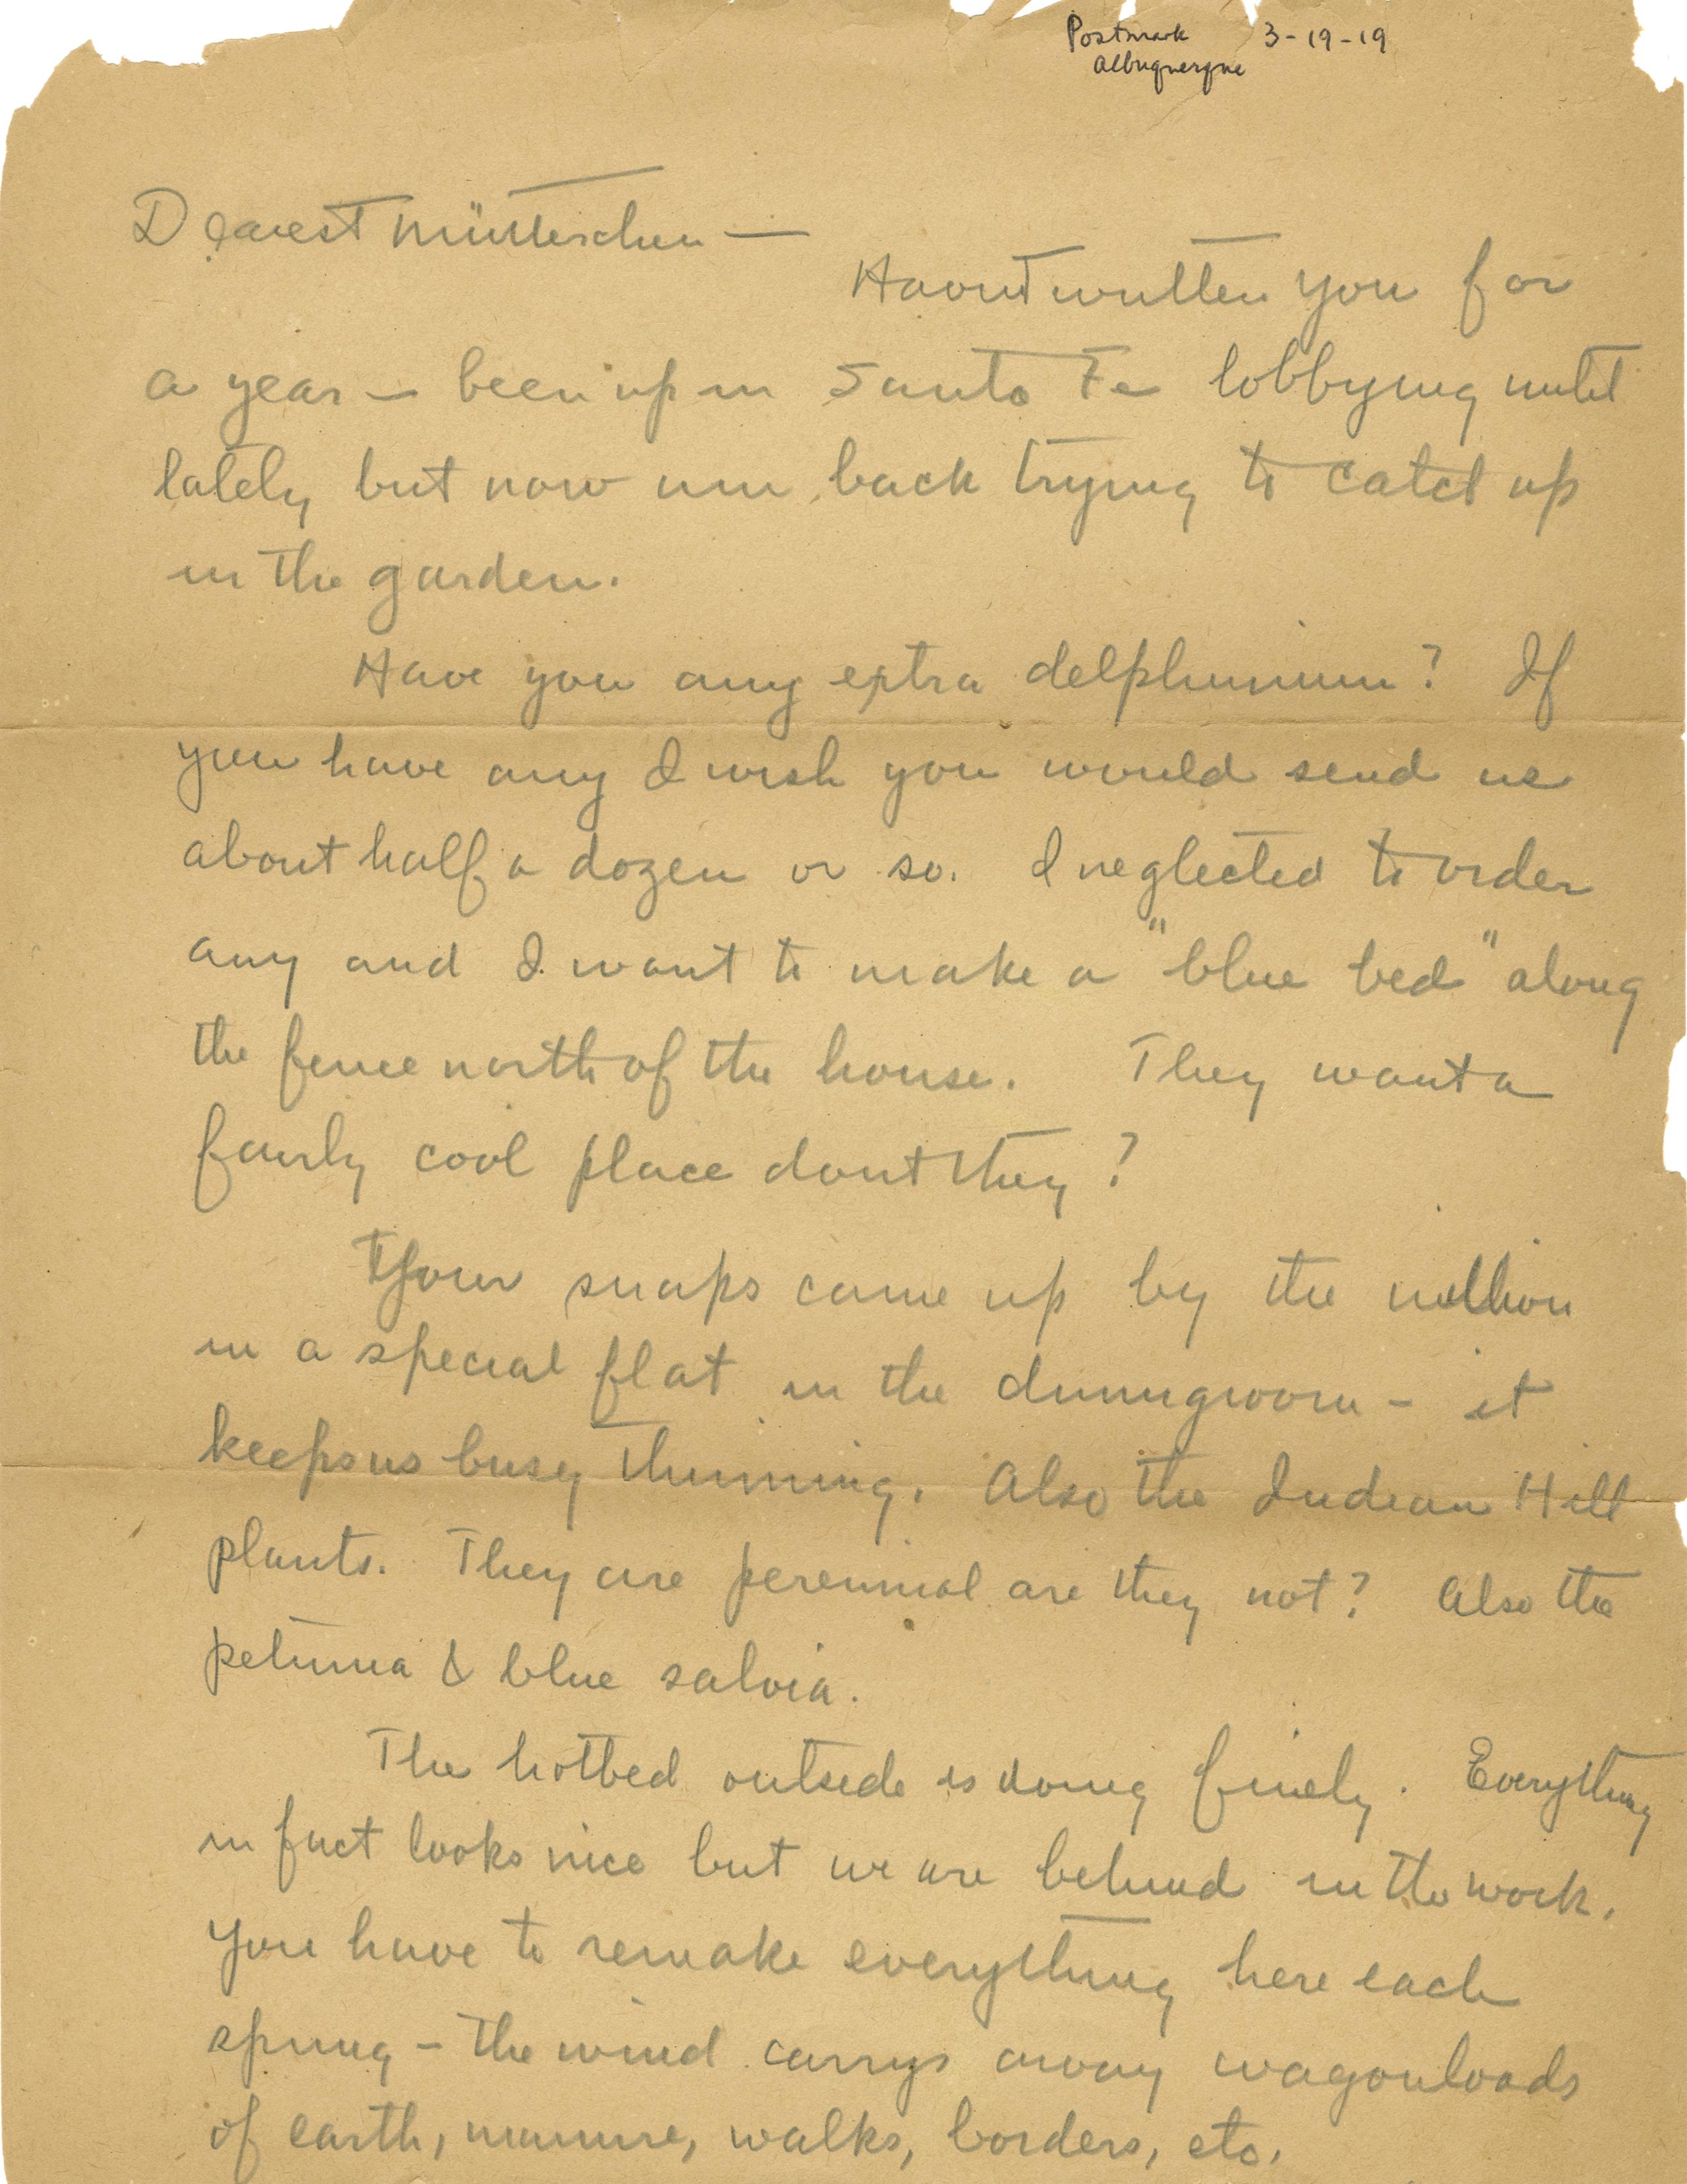 Postmark 3-19-19
Albuquerque
Dearest Mütterchen —
Havent written you for
a year — been up in Santa Fe lobbying until
lately, but now am back trying to catch up
in the garden.
Have you any extra delphinium? If
you have any I wish you would send us
about half a dozen or so. I neglected to order
any and I want to make a "blue bed" along
the fence north of the house. They want a
fairly cool place dont they?
Your snaps came up by the million
in a special flat in the diningroom - it
keeps us busy thinning. Also the Indian Hill
plants. They are perennial are they not? Also the
petunia & blue salvia.
The hotbed outside is doing finely. Everything
in fact looks nice but we are behind in the work.
You have to remake everything here each
spring - the wind carrys away wagonloads
of earth, manure, walks, borders, etc.